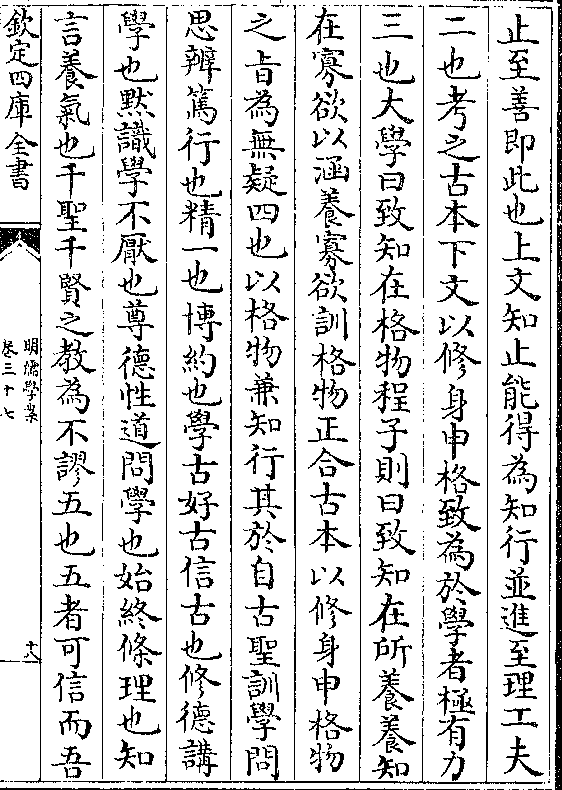 止至善即此也上文知止能得為知行並進至理工夫
二也考之古本下文以修身申格致為於學者極有力
三也大學曰致知在格物程子則曰致知在所養養知
在寡欲以涵養寡欲訓格物正合古本以修身申格物
之旨為無疑四也以格物兼知行其於自古聖訓學問
思辨篤行也精一也博約也學古好古信古也修德講
學也默識學不厭也尊德性道問學也始終條理也知
言養氣也千聖千賢之教為不謬五也五者可信而吾
欽定四庫全書
明儒學案
卷三十七
十八